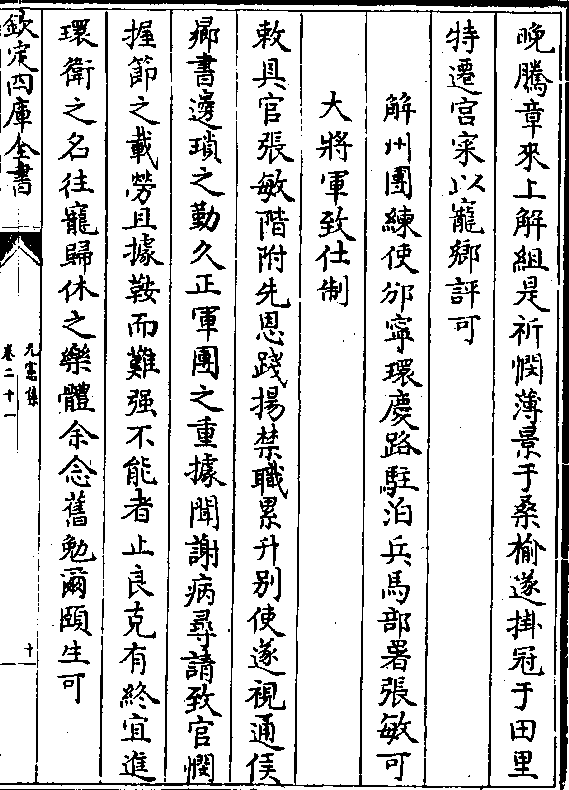 晚騰章來上解組是祈憫薄景于桑榆遂掛冠于田里
特遷宫寀以寵鄉評可
解州團練使邠寧環慶路駐泊兵馬部署張敏可
大將軍致仕制
敕具官張敏階附先恩踐揚禁職累升别使遂視通侯
鄉書邊瑣之勤久正軍團之重據聞謝病尋請致官憫
握節之載勞且據鞍而難强不能者止良克有終宜進
環衛之名往寵歸休之樂體余念舊勉爾頤生可
欽定四庫全書
元憲集
卷二十一
十